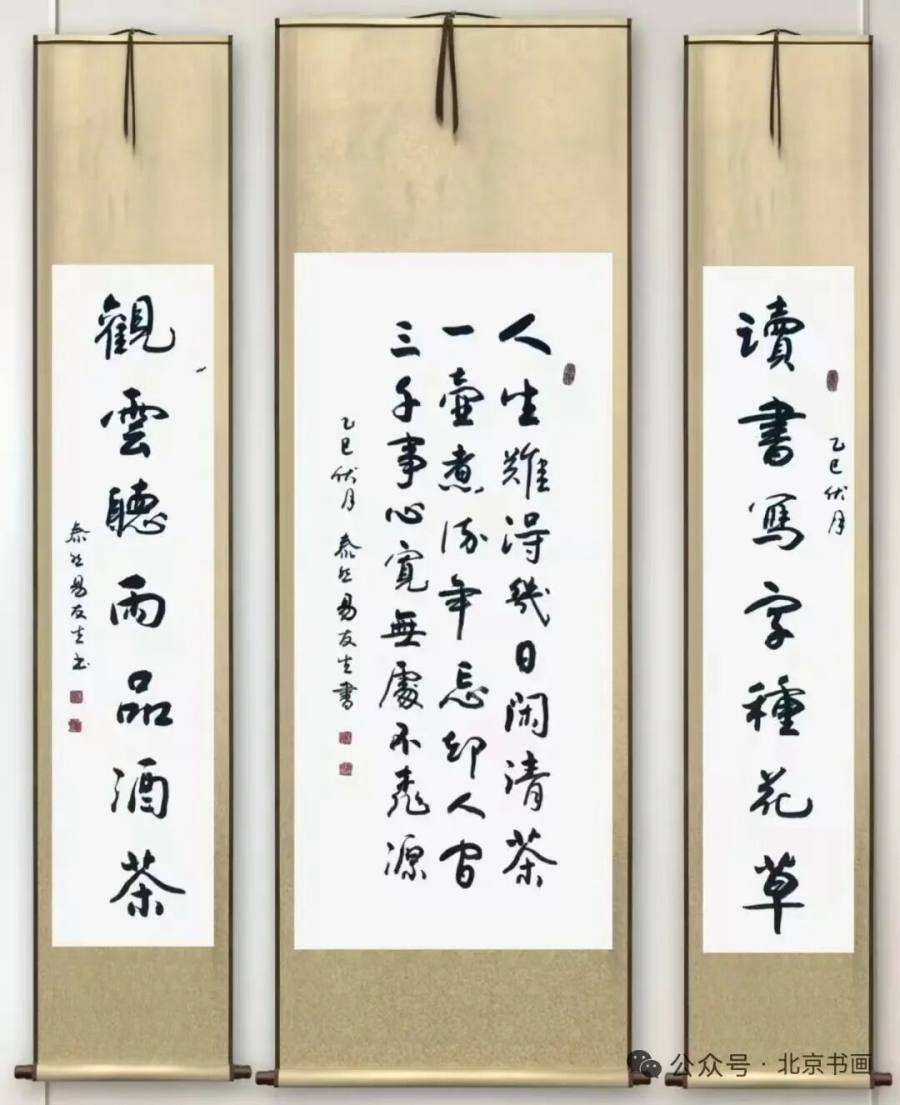 乙巳伏月
讀書寫字種花草
人生難得幾日闲清茶
一壺煮流年忘却人间
三千事心寬無處不桃源
乙巳伏月 泰然易友生書
觀雲聽雨品酒茶
泰然易友生书
公众号 · 北京书画